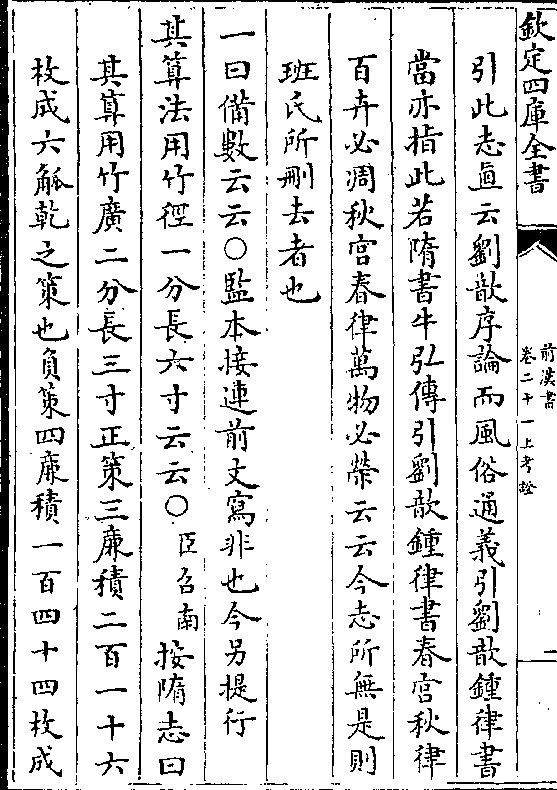 欽定四庫全書
前漢書
卷二十一上考證
一
引此志直云劉歆序論而風俗通義引劉歆鍾律書
當亦指此若隋書牛弘傳引劉歆鍾律書春宫秋律
百卉必凋秋宫春律萬物必榮云云今志所無是則
班氏所刪去者也
一曰備數云云〇監本接連前文寫非也今另提行
其算法用竹徑一分長六寸云云〇臣召南按隋志曰
其算用竹廣二分長三寸正策三廉積二百一十六
枚成六觚乾之策也負策四廉積一百四十四枚成